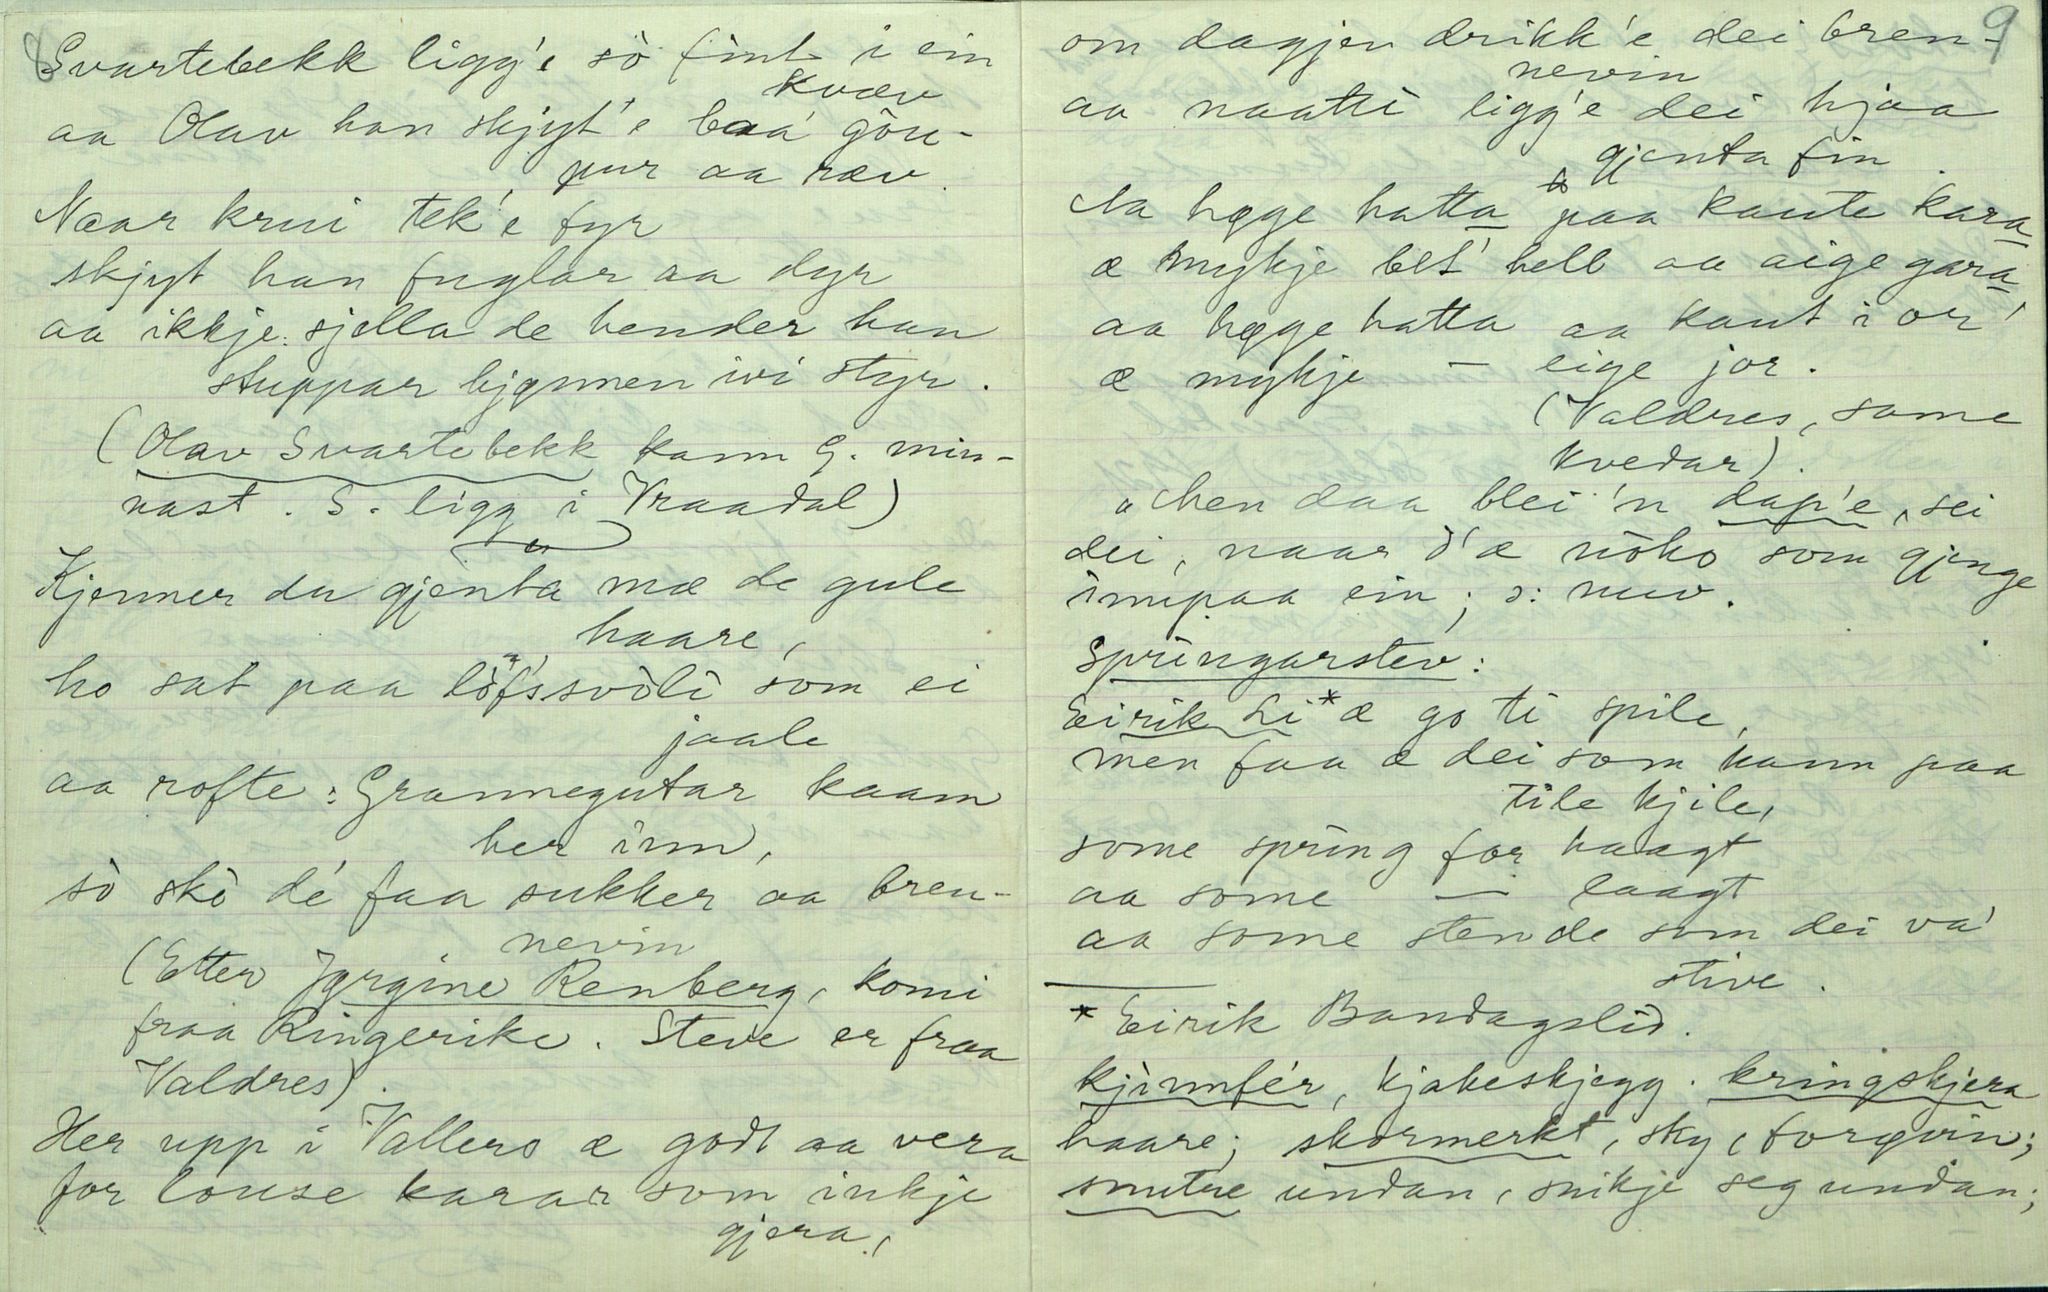 8
Svartebekk ligg'e sò fint i ein
kvæv
aa Olav han skjyt'e baa' gòu-
pur aa ræv.
Naar krui tek'e fyr
skjyt han fuglar aa dyr
aa ikkje sjella de hender han
stuppar bjønnen ivi styr.
(Olav Svartebekk kann G. min-
nast. S. ligg i Vraadal)
Kjenner du gjenta mæ de gule
haare,
ho sat paa lòfssvòli som ei
jaale
aa rofte: Grannegutar kaam
her inn,
sò skò dé faa sukker aa bren-
nevin
(Etter Jørgine Renberg, komi
fraa Ringerike. Steve er fraa
Valdres).
Her upp i Vallers æ godt aa vera
for louse karar som inkje
gjera,
9
om dagjen drikk'e dei bren-
nevin
aa naatti ligg'e dei hjaa
gjenta fin
Aa høge hatta paa kaute kara
æ mykje bet' hell aa aige gara
aa høge hatta aa kaut i or'
æ mykje — eige jor.
(Valdres, same
kvedar).
"Men daa blei 'n dap'e, sei
dei, naar d'æ nòko som gjenge
innpaa ein; ɔ: muv.
Springarstev:
Eirik Li* æ go ti spile,
men faa æ dei som kann paa
tile kjile,
some spring for haagt
aa some — laagt
aa some stende som dei va'
stive.
* Eirik Bandagslid.
kjinnfér, kjakeskjegg. kringskjera
haare; skormerkt, sky, forgvin;
smutre undan, snikje seg undan;